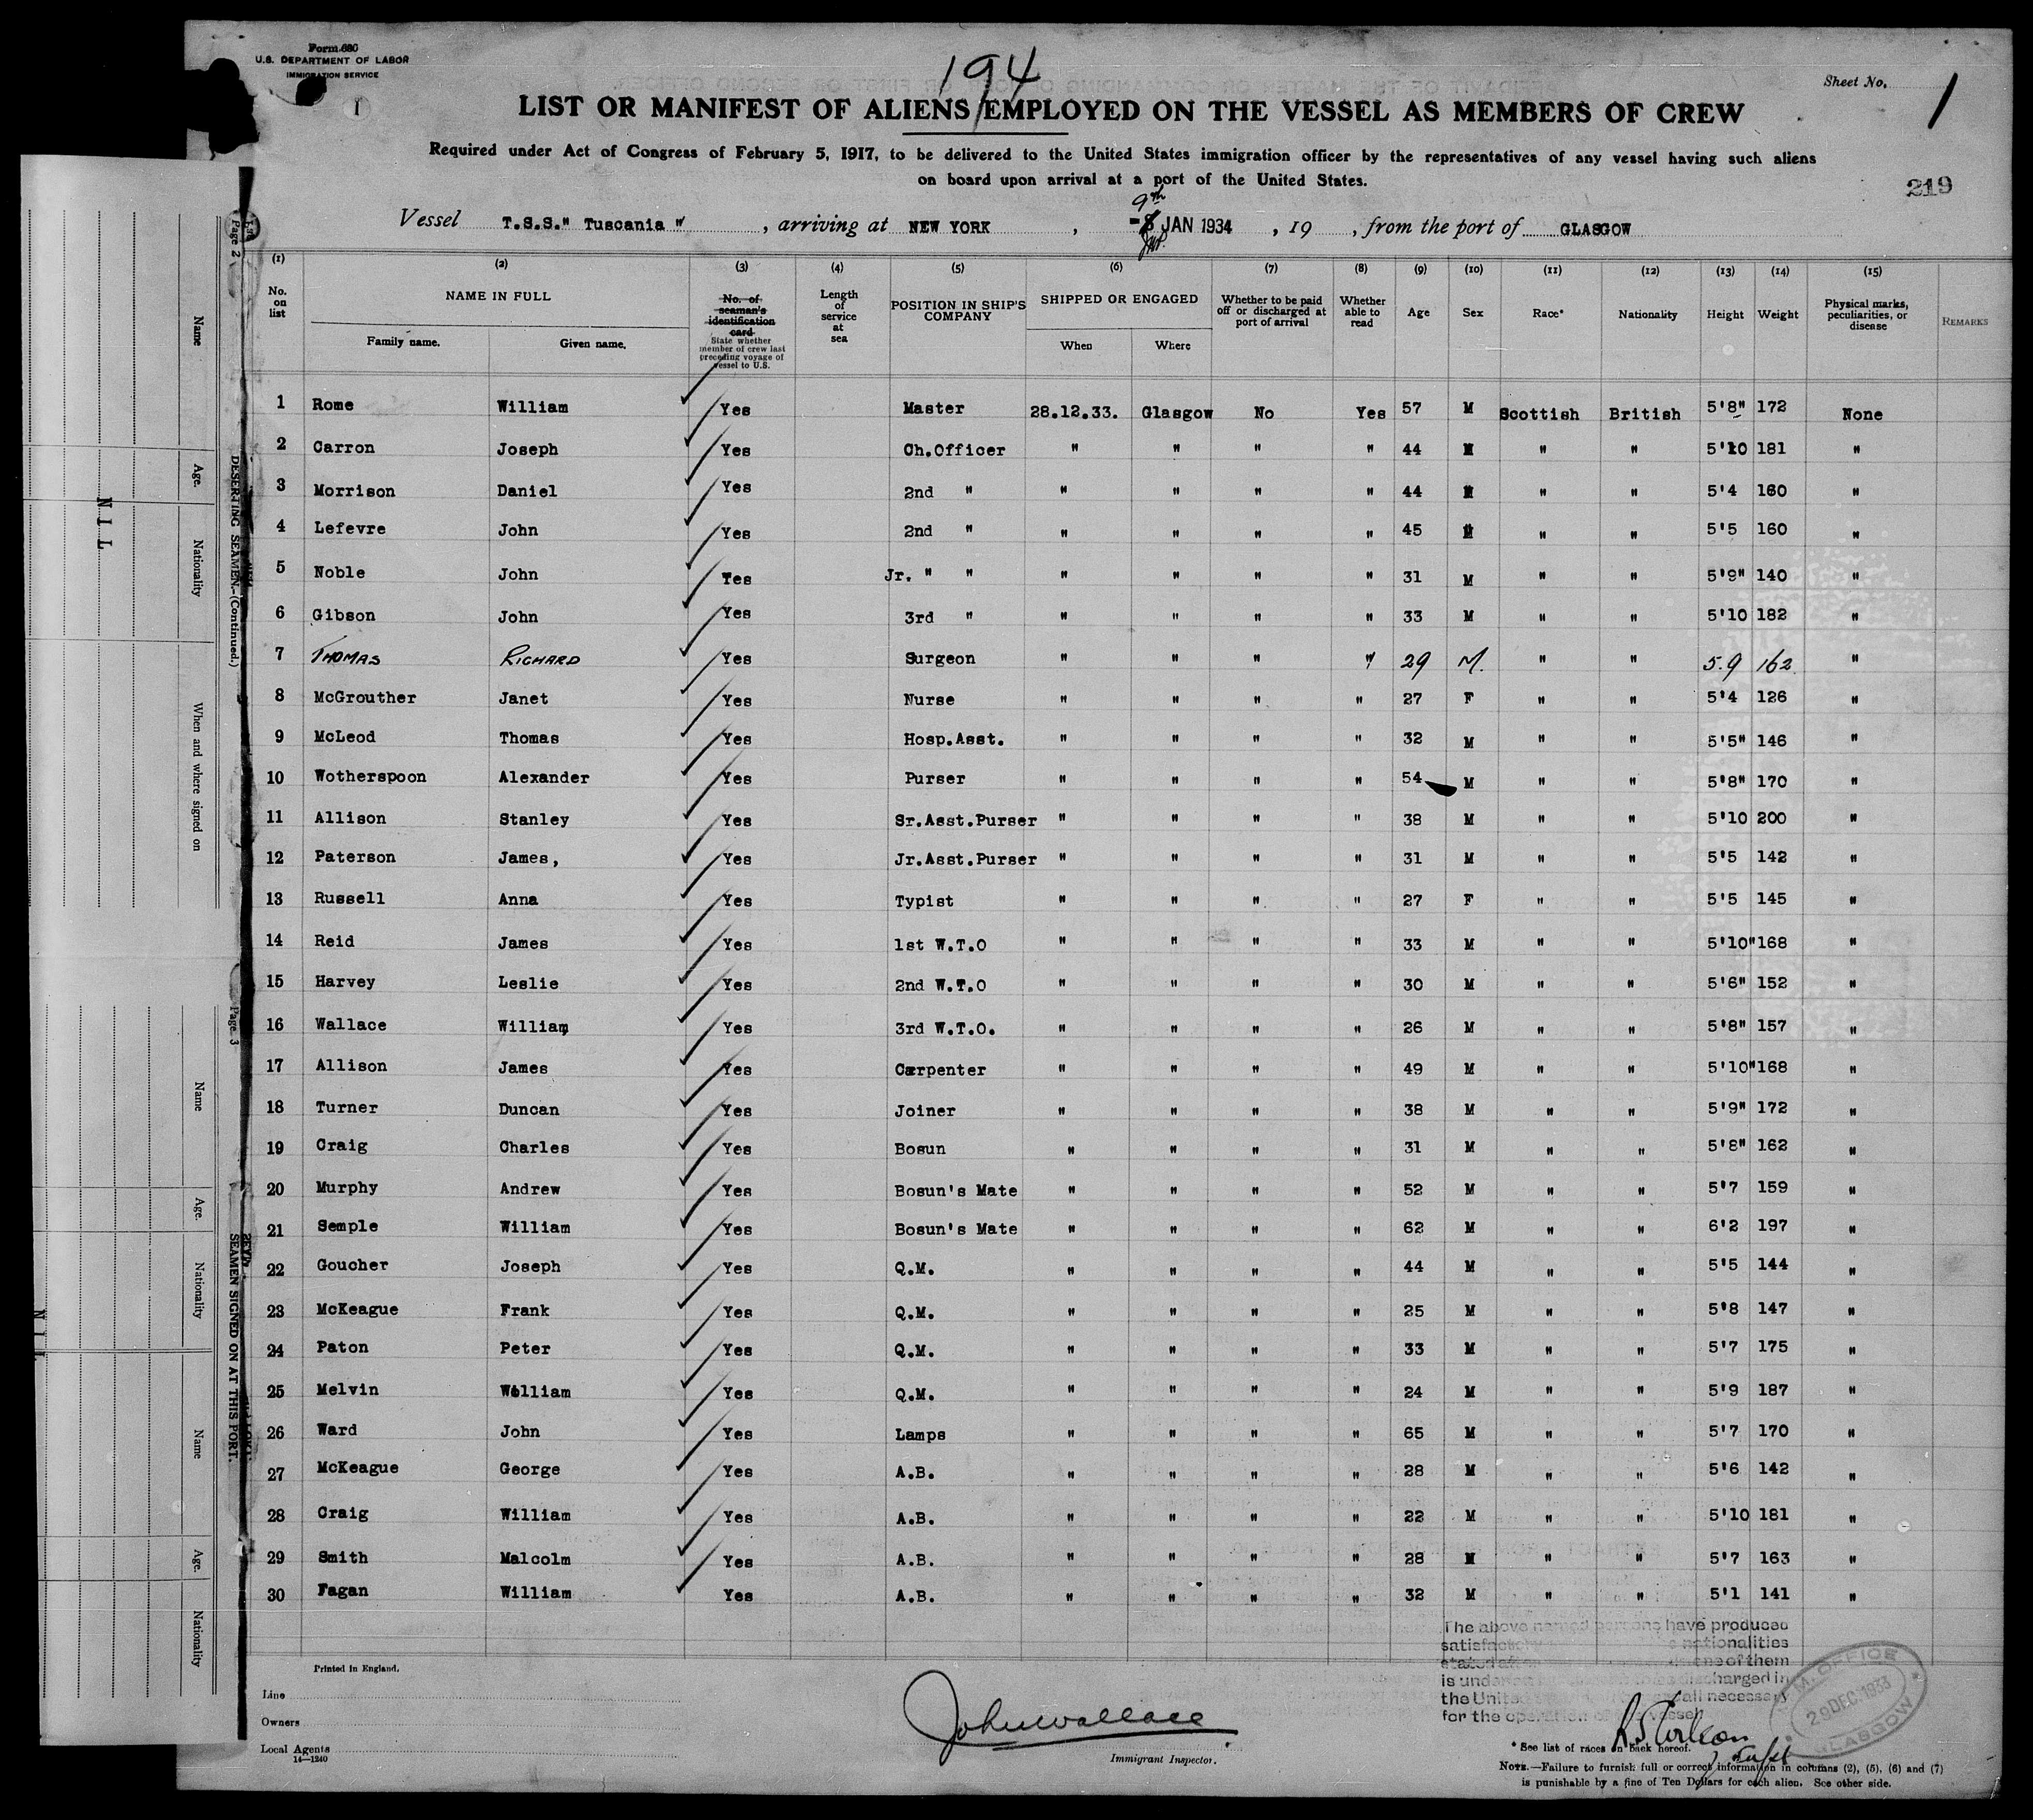 Form 680
U.S. DEPARTMENT OF LABOR
IMMIGRATION SERVICE
1
194
Sheet No. 1
LIST OR MANIFEST OF ALIENS EMPLOYED ON THE VESSEL AS MEMBERS OF CREW
Required under Act of Congress of February 5, 1917, to be delivered to the United States immigration officer by the representatives of any vessel having such aliens
on board upon arrival at a port of the United States.
219
9th
Vessel T.S.S." Tuscania " , arriving at NEW YORK , -8 JAN 1934 , 19 , from the port of GLASGOW
(1) (2) (3) (4) (5) (6) (7) (8) (9) (10) (11) (12) (13) (14) (15)
No. on list NAME IN FULL Family name. Given name. No. of seaman's identification card State whether member of crew last preceding voyage of vessel to U.S. Length of service at sea POSITION IN SHIP'S COMPANY SHIPPED OR ENGAGED When Where Whether to be paid off or discharged at port of arrival Whether able to read Age Sex Race* Nationality Height Weight Physical marks, peculiarities, or disease REMARKS
1 Rome William Yes Master 28.12.33. Glasgow No Yes 57 M Scottish British 5'8" 172 None
2 Carron Joseph Yes Ch.Officer " " " " 44 M " " 5'10 181 "
3 Morrison Daniel Yes 2nd " " " " " 44 M " " 5'4 160 "
4 Lefevre John Yes 2nd " " " " " 45 M " " 5'5 160 "
5 Noble John Yes Jr. " " " " " " 31 M " " 5'9" 140 "
6 Gibson John Yes 3rd " " " " " 33 M " " 5'10 182 "
7 THOMAS RICHARD Yes Surgeon " " " " 29 M. " " 5.9 162 "
8 McGrouther Janet Yes Nurse " " " " 27 F " " 5'4 126 "
9 McLeod Thomas Yes Hosp.Asst. " " " " 32 M " " 5'5" 146 "
10 Wotherspoon Alexander Yes Purser " " " " 54 M " " 5'8" 170 "
11 Allison Stanley Yes Sr.Asst.Purser " " " " 38 M " " 5'10 200 "
12 Paterson James, Yes Jr.Asst.Purser " " " " 31 M " " 5'5 142 "
13 Russell Anna Yes Typist " " " " 27 F " " 5'5 145 "
14 Reid James Yes 1st W.T.O " " " " 33 M " " 5'10" 168 "
15 Harvey Leslie Yes 2nd W.T.O " " " " 30 M " " 5'6" 152 "
16 Wallace William Yes 3rd W.T.O. " " " " 26 M " " 5'8" 157 "
17 Allison James Yes Carpenter " " " " 49 M " " 5'10" 168 "
18 Turner Duncan Yes Joiner " " " " 38 M " " 5'9" 172 "
19 Craig Charles Yes Bosun " " " " 31 M " " 5'8" 162 "
20 Murphy Andrew Yes Bosun's Mate " " " " 52 M " " 5'7 159 "
21 Semple William Yes Bosun's Mate " " " " 62 M " " 6'2 197 "
22 Goucher Joseph Yes Q.M. " " " " 44 M " " 5'5 144 "
23 McKeague Frank Yes Q.M. " " " " 25 M " " 5'8 147 "
24 Paton Peter Yes Q.M. " " " " 33 M " " 5'7 175 "
25 Melvin William Yes Q.M. " " " " 24 M " " 5'9 187 "
26 Ward John Yes Lamps " " " " 65 M " " 5'7 170 "
27 McKeague George Yes A.B. " " " " 28 M " " 5'6 142 "
28 Craig William Yes A.B. " " " " 22 M " " 5'10 181 "
29 Smith Malcolm Yes A.B. " " " " 28 M " " 5'7 163 "
30 Fagan William Yes A.B. " " " " 32 M " " 5'1 141 "
The above named persons have produced
satisfactory nationalities
stated one of them
is under discharged in
the United all necessary
for the operation vessel
M.M. OFFICE
29 DEC 1933
GLASGOW
Printed in England.
Line
Owners
Local Agents
14—1240
John Wallace
Immigrant Inspector.
* See list of races on back hereof.
NOTE.—Failure to furnish full or correct information in columns (2), (5), (6) and (7)
is punishable by a fine of Ten Dollars for each alien. See other side.
Page 2
DESERTING SEAMEN.—(Continued.)
Name
Age.
Nationality
When and where signed on
NIL
Page 3
SEAMEN SIGNED ON AT THIS PORT.
Name
Age.
Nationality
Name
Age.
Nationality
NIL